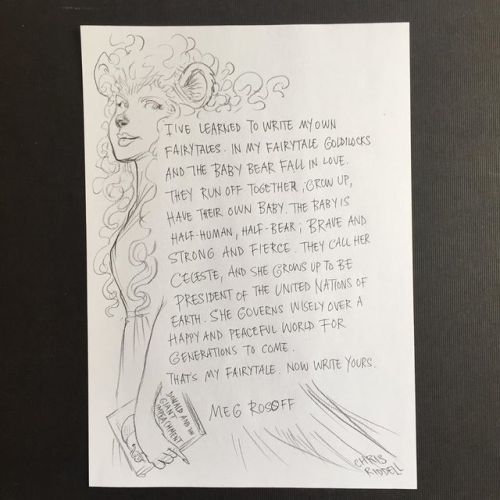 I'VE LEARNED TO WRITE MY OWN
FAIRYTALES. IN MY FAIRYTALE GOLDILOCKS
AND THE BABY BEAR FALL IN LOVE.
THEY RUN OFF TOGETHER, GROW UP,
HAVE THEIR OWN BABY. THE BABY IS
HALF-HUMAN, HALF-BEAR; BRAVE AND
STRONG AND FIERCE. THEY CALL HER
CELESTE, AND SHE GROWS UP TO BE
PRESIDENT OF THE UNITED NATIONS OF
EARTH. SHE GOVERNS WISELY OVER A
HAPPY AND PEACEFUL WORLD FOR
GENERATIONS TO COME.
THAT'S MY FAIRYTALE. NOW WRITE YOURS.
MEG ROSOFF
DONALD AND THE
GIANT
IMPEACHMENT
CHRIS
RIDDELL